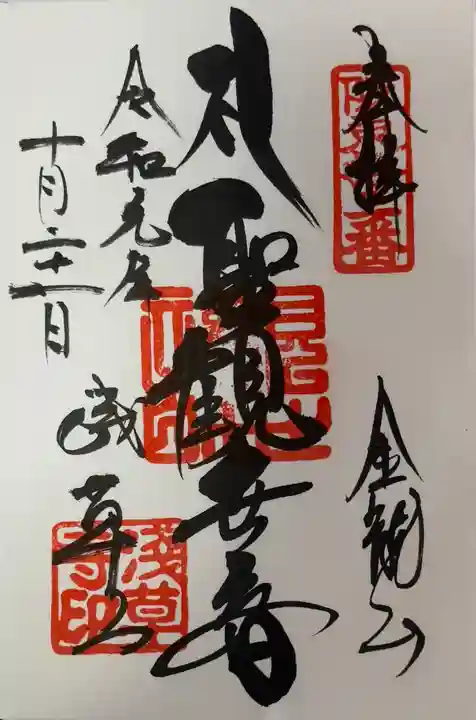 奉拝
金龍山
聖観世音
令和元年
十月二十一日
浅草寺
浅草
寺印